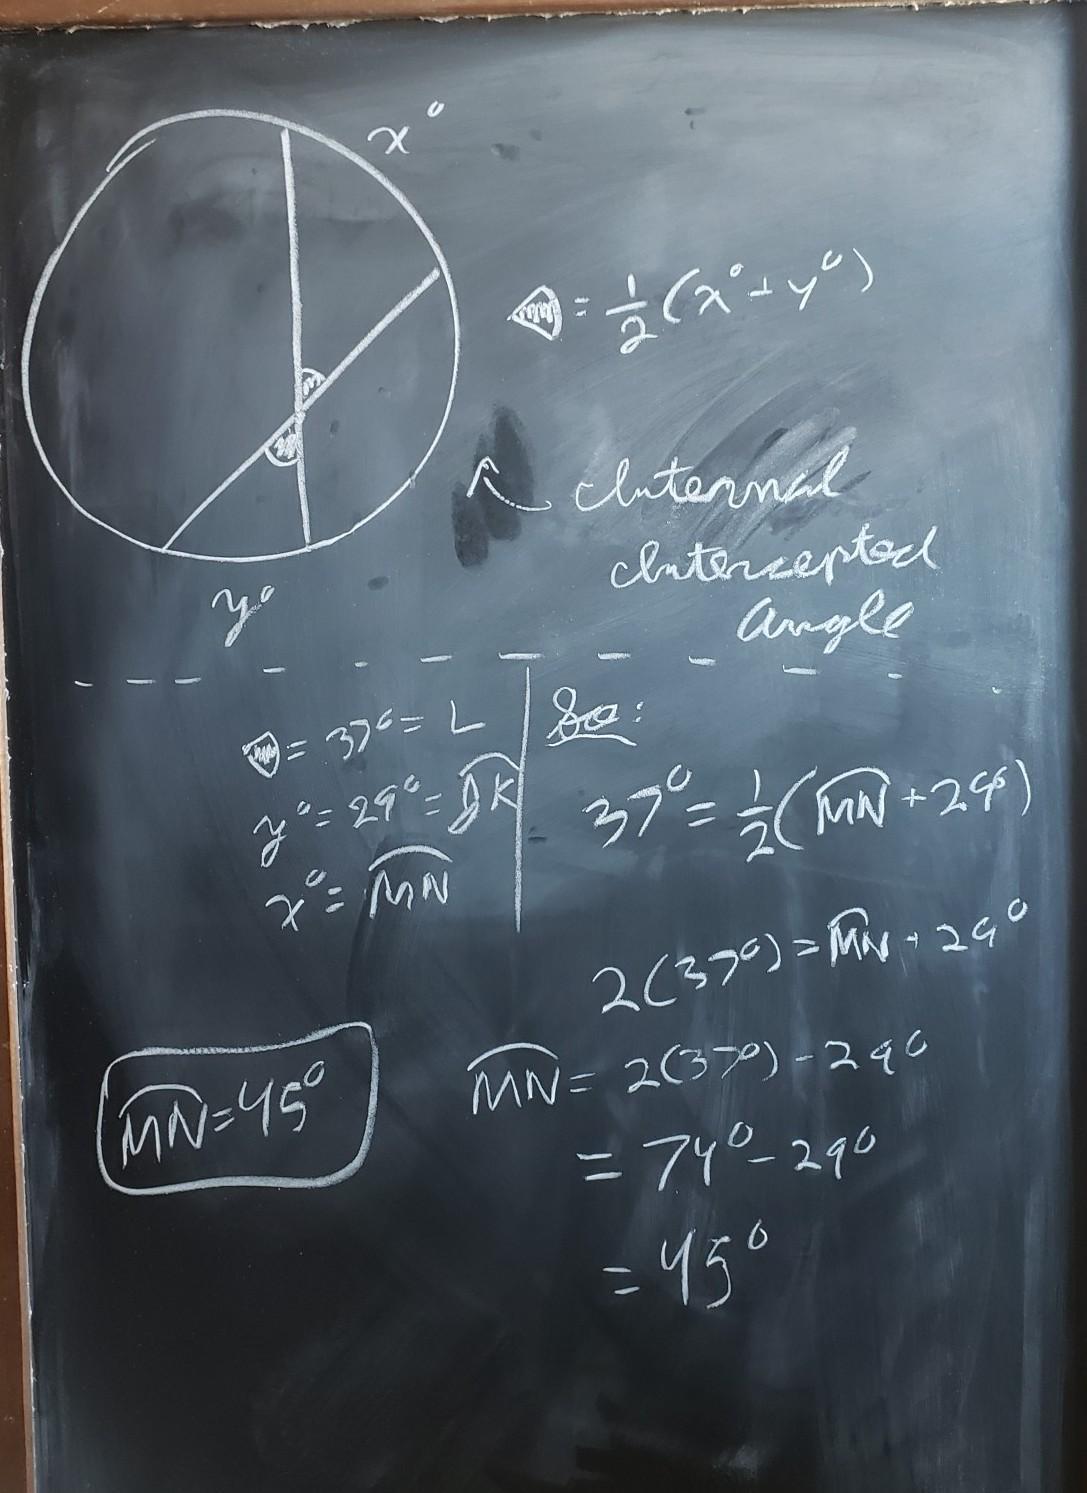 x°
= 1/2 (x° + y°)
Internal
Intercepted
Angle
y°
= 37° = L
y° = 29° = JK
x° = MN
So:
37° = 1/2 (MN + 29°)
2(37°) = MN + 29°
MN = 2(37°) - 29°
= 74° - 29°
= 45°
MN = 45°